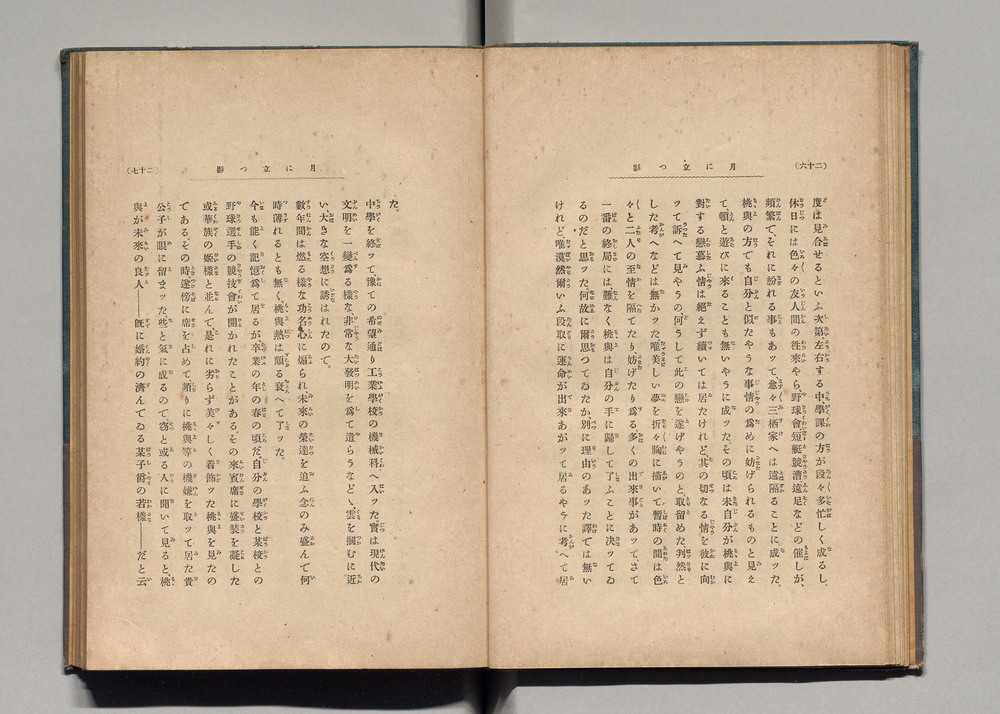 (二十六)
月に立つ影
度は見合せるといふ次第左右する中、學課の方が段々多忙しく成るし、
休日には色々の友人間の往來やら、野球會短艇競漕遠足などの催しが、
頻繁で、それに紛れる事もあッて愈々三栖家へは遠隔ることに成ッた。
桃與の方でも自分と似たやうな事情の爲めに妨げられるものと見え
て頓と遊びに來ることも無いやうに成ッた。その頃は未自分が桃與に
對する戀慕ふ情は絕えず續いては居たけれど、其の切なる情を彼に向
ッて訴へて見やうの、何うして此の戀を遂げやうのと取留めた判然と
した考へなどは無かッた唯美しい夢を折々胸に描いて、暫時の間は色
々と二人の至情を隔てたり妨げたり爲る多くの出來事があッて、さて
一番の終局には難なく桃與は自分の手に歸して了ふことに決ッてゐ
るのだと思ッた。何故に爾思つてゐたか、別に理由のあッた譯では無い
けれど、唯漠然爾いふ段取に運命が出來あがッて居るやうに考へて居
(二十七)
月に立つ影
た。
中學を終ッて、豫ての希望通り工業學校の機械科へ入ッた實は現代の
文明を一變爲る樣な、非常な大發明を爲て遣らうなどゝ、雲を摑むに近
い、大きな空想に誘はれたので。
數年間は燃る樣な功名心に煽られ未來の榮達を追ふ念のみ盛んで何
時薄れるとも無く桃與熱は頗る衰へて了ッた。
今も能く記憶爲て居るが卒業の年の春の頃だ、自分の學校と某校との
野球選手の競技會が開かれたことがある、その來賓席に盛裝を凝した
或華族の姬樣と並んで是れに劣らず美々しく着飾ッた桃與を見たの
である。その時遂傍に席を占めて頻りに桃與等の機嫌を取ッて居た貴
公子が眼に留まッた些と氣に成るので窃と或る人に聞いて見ると、桃
與が未來の良人――既に婚約の濟んでゐる某子爵の若樣――だと云